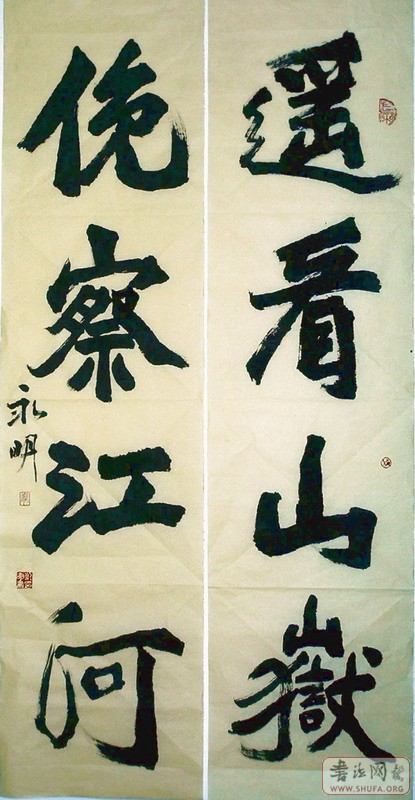 遥看山嶽
俛察江河
永明
WWW.SHUFA.ORG